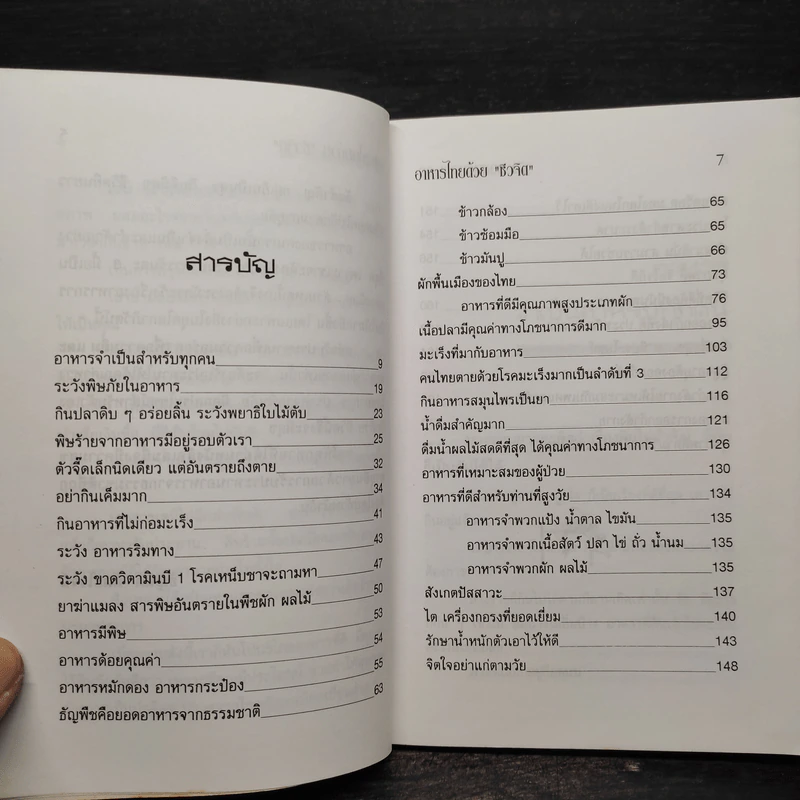 สารบัญ
อาหารจำเป็นสำหรับทุกคน 9
ระวังพิษภัยในอาหาร 19
กินปลาดิบ ๆ อร่อยลิ้น ระวังพยาธิใบไม้ตับ 23
พิษร้ายจากอาหารมีอยู่รอบตัวเรา 25
ตัวจี๊ดเล็กนิดเดียว แต่อันตรายถึงตาย 32
อย่ากินเค็มมาก 34
กินอาหารที่ไม่ก่อมะเร็ง 41
ระวัง อาหารริมทาง 43
ระวัง ขาดวิตามินบี 1 โรคเหน็บชาจะถามหา 47
ยาฆ่าแมลง สารพิษอันตรายในพืชผัก ผลไม้ 50
อาหารมีพิษ 53
อาหารด้อยคุณค่า 54
อาหารหมักดอง อาหารกระป๋อง 55
ธัญพืชคือยอดอาหารจากธรรมชาติ 63
อาหารไทยด้วย "ชีวจิต" 7
ข้าวกล้อง 65
ข้าวซ้อมมือ 65
ข้าวมันปู 66
ผักพื้นเมืองของไทย 73
อาหารที่ดีมีคุณภาพสูงประเภทผัก 76
เนื้อปลามีคุณค่าทางโภชนาการดีมาก 95
มะเร็งที่มากับอาหาร 103
คนไทยตายด้วยโรคมะเร็งมากเป็นลำดับที่ 3 112
กินอาหารสมุนไพรเป็นยา 116
น้ำดื่มสำคัญมาก 121
ดื่มน้ำผลไม้สดดีที่สุด ได้คุณค่าทางโภชนาการ 126
อาหารที่เหมาะสมของผู้ป่วย 130
อาหารที่ดีสำหรับท่านที่สูงวัย 134
อาหารจำพวกแป้ง น้ำตาล ไขมัน 135
อาหารจำพวกเนื้อสัตว์ ปลา ไข่ ถั่ว น้ำนม 135
อาหารจำพวกผัก ผลไม้ 135
สังเกตปัสสาวะ 137
ไต เครื่องกรองที่ยอดเยี่ยม 140
รักษาน้ำหนักตัวเอาไว้ให้ดี 143
จิตใจอย่าแก่ตามวัย 148